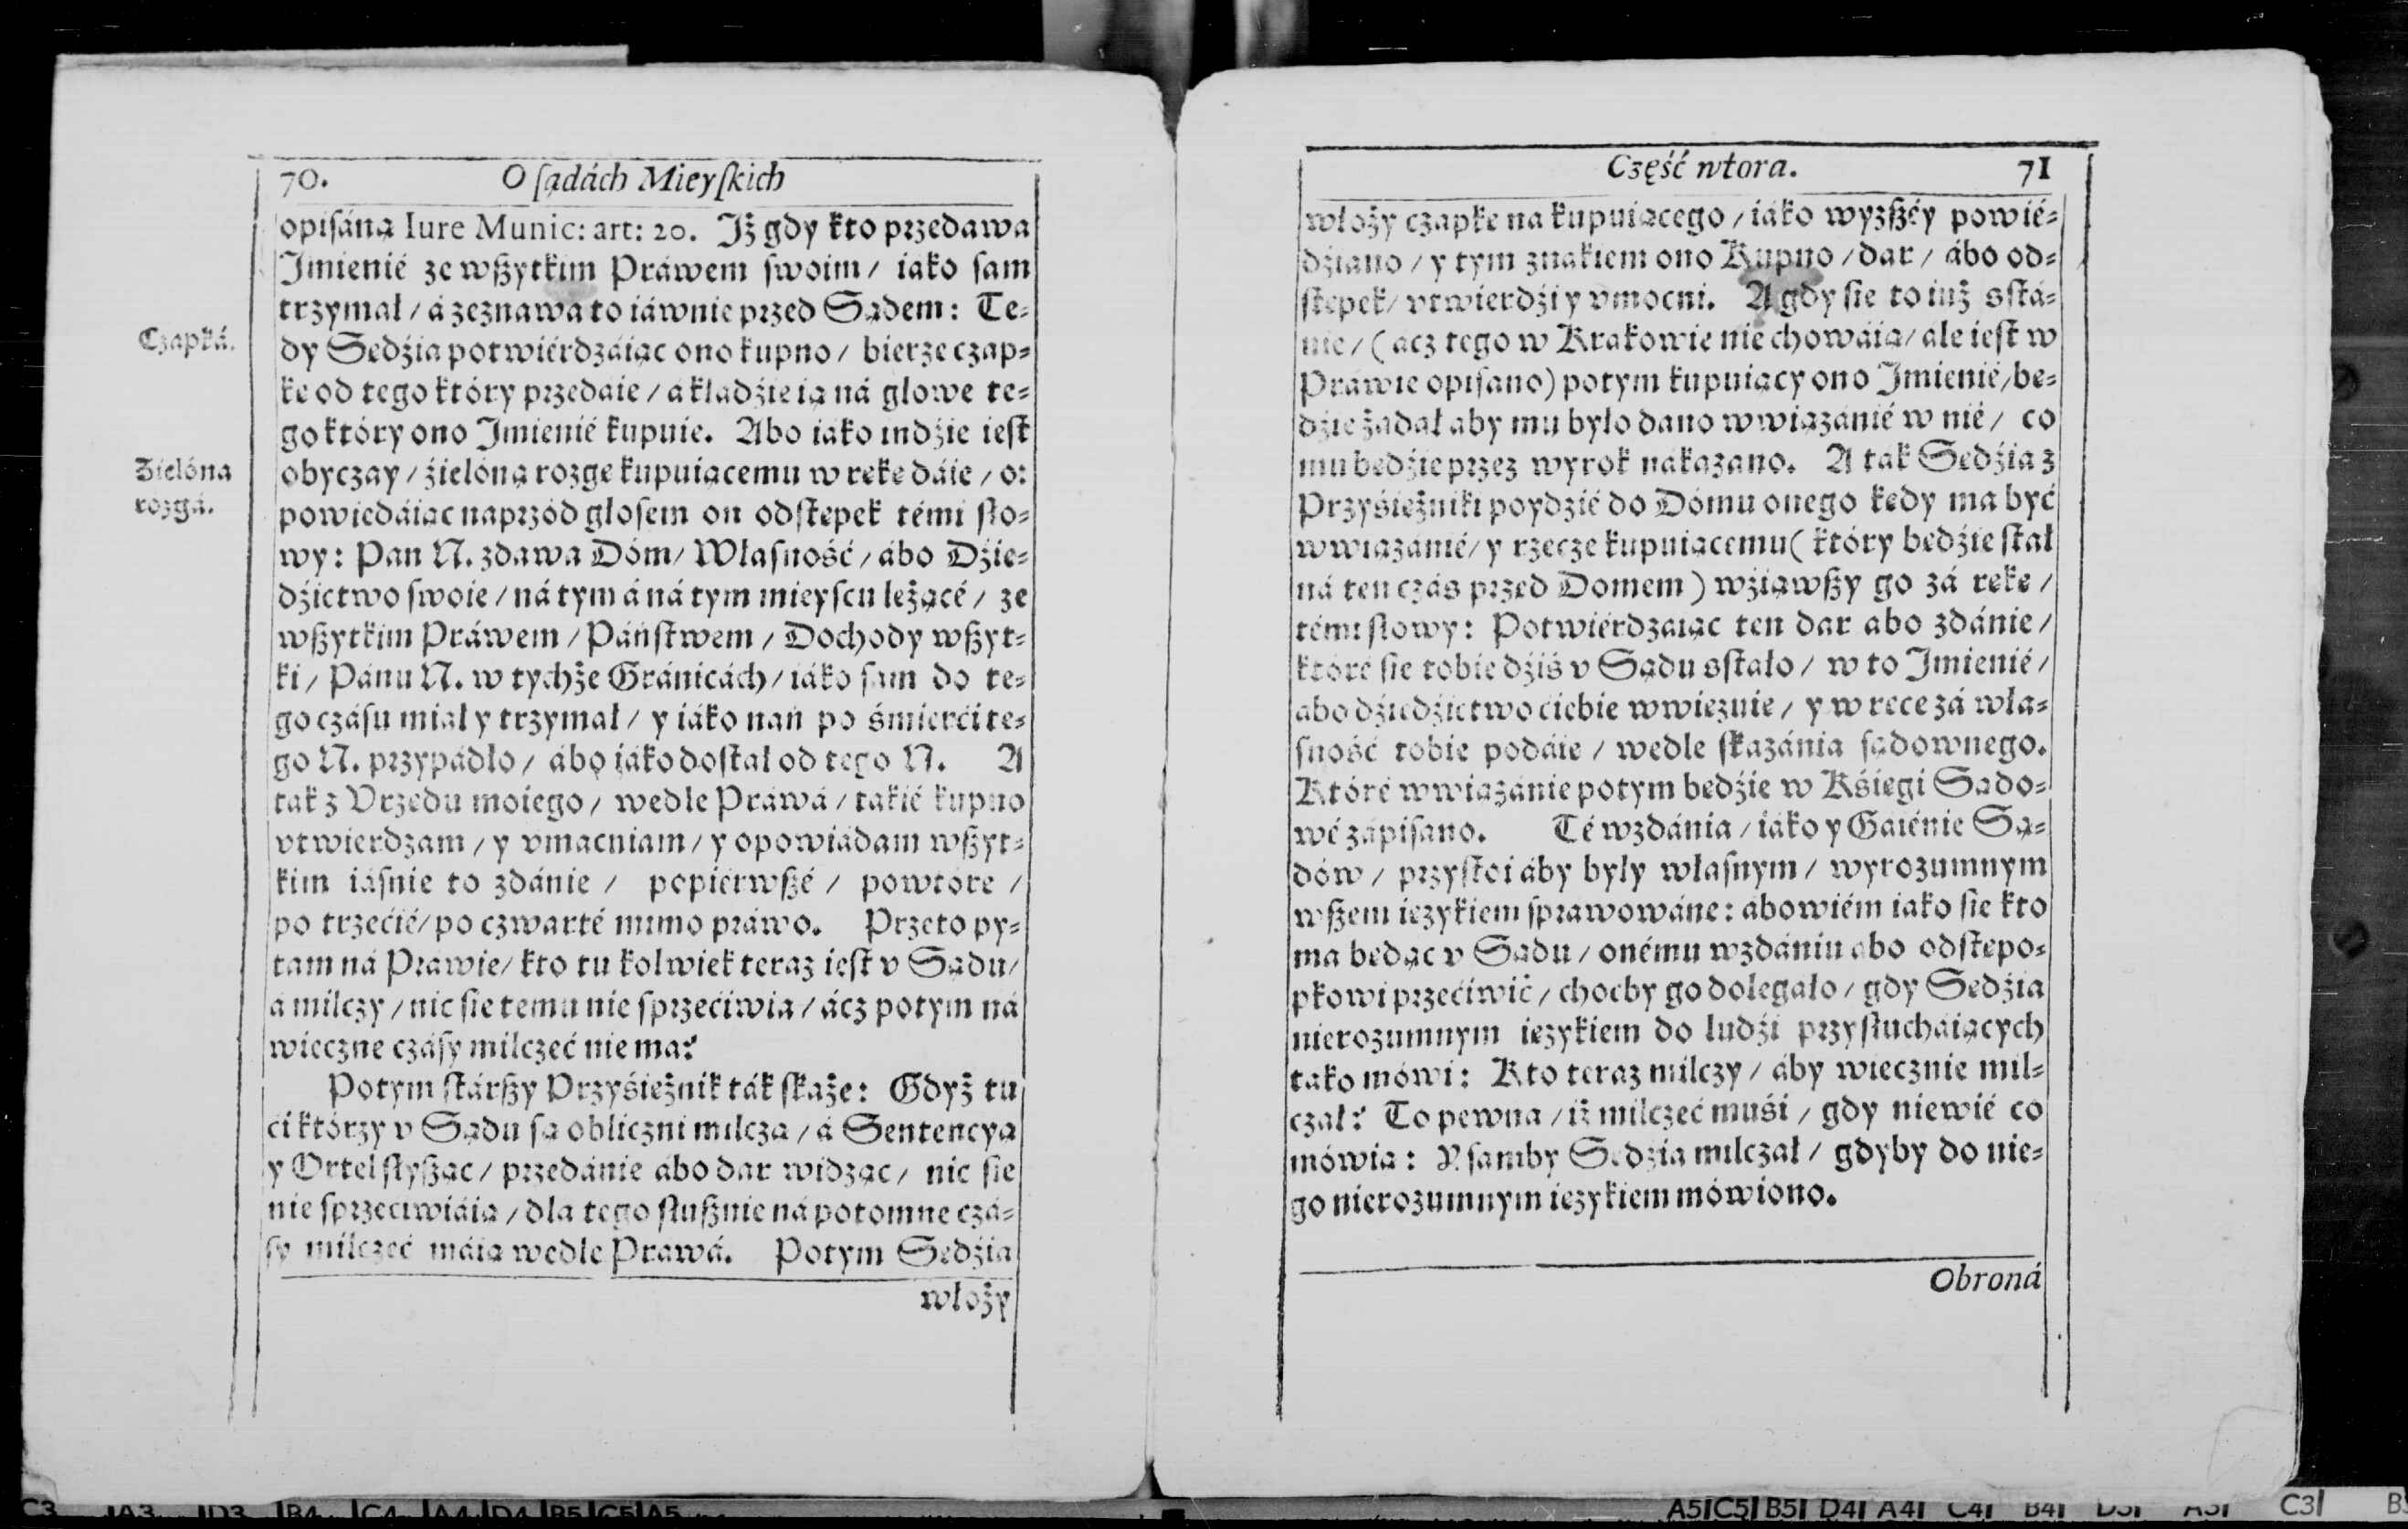 70. O ſądách Mieyſkich
opiſáną Iure Munic: art: 20. Jż gdy kto przedawa
Jmienié ze wßytkim Práwem ſwoim / iáko ſam
trzymał / á zeznawa to iáwnie przed Sądem: Te⸗
Czapká.
dy Sedźia potwiérdzáiąc ono kupno / bierze czap⸗
ke od tego który przedáie / á kładźie ią ná głowe te⸗
go który ono Jmienié kupuie. Abo iáko indźie ieſt
Zielóna
rozgá.
obyczay / źielóną rozge kupuiącemu w reke dáie / o:
powiedáiąc naprzód głoſem on odſtepek témi ſło⸗
wy: Pan N. zdawa Dóm / Właſność / ábo Dźie⸗
dźictwo ſwoie / ná tym á ná tym mieyſcu leżącé / ze
wßytkim Práwem / Páńſtwem / Dochody wßyt⸗
ki / Pánu N. w tychże Gránicách / iáko ſam do te⸗
go czáſu miał y trzymał / y iáko nań po śmierći te⸗
go N. przypádło / ábo iáko doſtał od tego N. A
tak z Vrzedu moiego / wedle Práwá / takié kupno
vtwierdzam / y vmacniam / y opowiádam wßyt⸗
kim iáſnie to zdánie / popiérwßé / powtóre /
po trzećié / po czwarté mimo práwo. Przeto py⸗
tam ná Prawie / kto tu kolwiek teraz ieſt v Sądu /
á milczy / nic ſie temu nie ſprzećiwia / ácz potym ná
wieczne czáſy milczeć nie ma?
Potym ſtárßy Przyśieżnik ták ſkaże: Gdyż tu
ći którzy v Sądu ſą obliczni milczą / á Sentencyą
y Ortel ſłyßąc / przedánie ábo dar widząc / nic ſie
nie ſprzećiwiáią / dla tego ſłußnie ná potomne czá⸗
ſy milczeć máią wedle Prawá. Potym Sedźia
włoży
Część wtora. 71
włoży czapke na kupuiącego / iáko wyzßéy powié⸗
dźiano / y tym znakiem ono Kupno / dar / ábo od⸗
ſtepek / vtwierdźi y vmocni. A gdy ſie to iuż sſtá⸗
nie / (acz tego w Krakowie nie chowáią / ale ieſt w
Práwie opiſano) potym kupuiący ono Jmienié / be⸗
dźie żądał aby mu było dano wwiązánié w nié / co
mu bedźie przez wyrok nakazano. A tak Sedźia z
Przyśieżniki poydzié do Dómu onego kedy ma być
wwiązánié / y rzecze kupuiącemu ( który bedźie ſtał
ná ten czás przed Domem ) wźiąwßy go zá reke /
témi ſłowy: Potwiérdzaiąc ten dar abo zdánie /
któré ſie tobie dźiś v Sądu sſtało / w to Jmienié /
abo dźiedźictwo ćiebie wwiezuie / y w rece zá wła⸗
ſność tobie podáie / wedle ſkazánia ſądownego.
Któré wwiązánie potym bedźie w Kśiegi Sądo⸗
wé zápiſano. Té wzdánia / iáko y Gaiénie Są⸗
dów / przyſtoi áby były właſnym / wyrozumnym
wßem iezykiem ſprawowáne: abowiém iako ſie kto
ma bedąc v Sądu / onému wzdániu abo odſtepo⸗
pkowi przećiwić / choćby go dolegáło / gdy Sedźia
nierozumnym iezykiem do ludźi przyſłucháiących
tako mówi: Kto teraz milczy / áby wiecznie mil⸗
czał? To pewna / iż milczeć muśi / gdy niewié co
mówią: Y ſamby Sedźia milczał / gdyby do nie⸗
go nierozumnym iezykiem mówiono.
Obroná
A5 C5 B5 D4 A4 C4 B4 C3